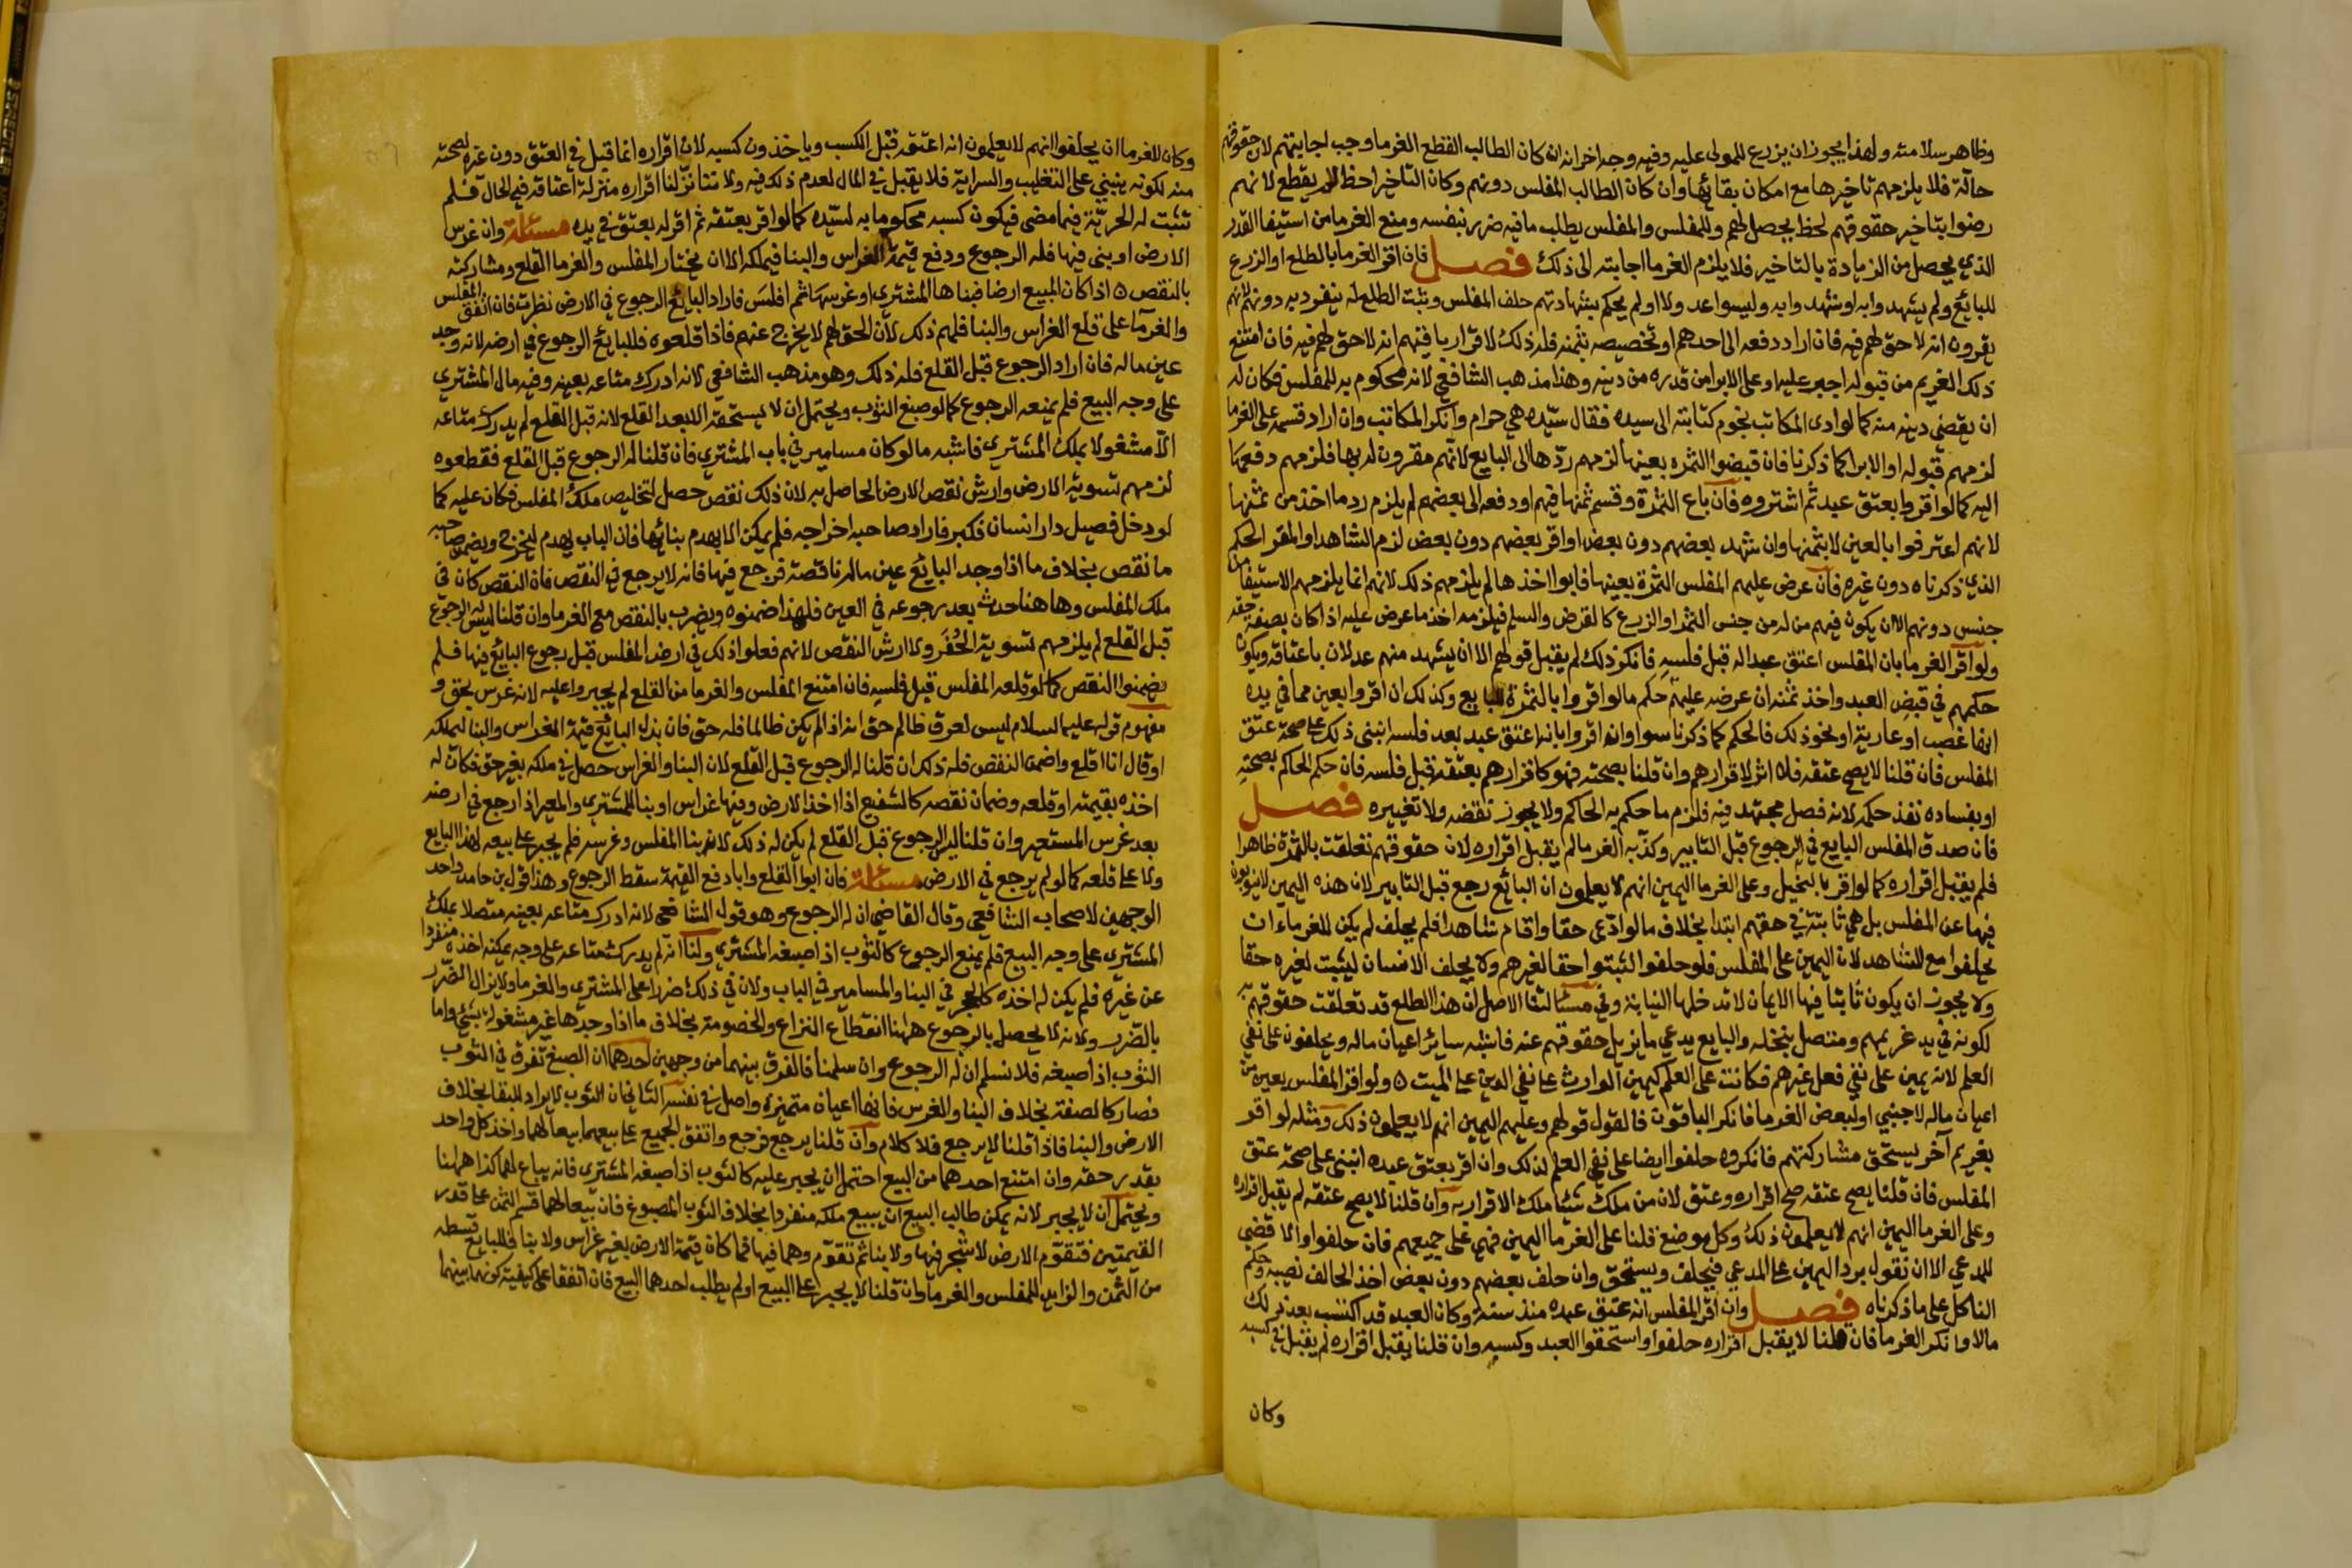 وظاهر سلامته ولهذا يجوز ان يزرع للمولى عليه وفيه وجه اخر انه ان كان الطالب القطع الغرما وجب اجابتهم لان حقوقهم
حالّة فلا يلزمهم تاخيرها مع امكان بقائها وان كان الطالب المفلس دونهم وكان التاخير احظ له لم يقطع لانهم
رضوا بتاخير حقوقهم لحظ يحصل لهم وللمفلس والمفلس يطلب ما فيه ضرر بنفسه ومنع الغرما من استيفا القدر
الذي يحصل من الزيادة بالتاخير فلا يلزم الغرما اجابته الى ذلك فصل فان اقر الغرما بالطلع او الزرع
للبائع ولم يشهدوا به او شهدوا به وليسوا عدولا او لم يحكم بشهادتهم حلف المفلس وثبت الطلع له ينفرد به دونهم لانهم
يقرون انه لا حق لهم فيه فان اراد دفعه الى احدهم او تخصيصه بثمنه فله ذلك لاقرار باقيهم انه لا حق لهم فيه فان امتنع
ذلك الغريم من قبوله اجبر عليه او على الابرا من قدره من دينه وهذا مذهب الشافعي لانه محكوم به للمفلس فكان له
ان يقضي دينه منه كما لو ادى المكاتب نجوم كتابته الى سيده فقال سيّده هي حرام وانكر المكاتب وان اراد قسمه على الغرما
لزمهم قبوله او الابرا كما ذكرنا فان قبضوا الثمره بعينها لزمهم ردّها الى البايع لانهم مقرون له بها فلزمهم دفعها
اليه كما لو اقروا بعتق عبد ثم اشتروه فان باع الثمرة وقسم ثمنها فيهم او دفعه الى بعضهم لم يلزم رد ما اخذ من ثمنها
لانهم اعترفوا بالعين لا بثمنها وان شهد بعضهم دون بعض او اقر بعضهم دون بعض لزم الشاهد او المقر الحكم
الذي ذكرناه دون غيره فان عرض عليهم المفلس الثمرة بعينها فابوا اخذها لم يلزمهم ذلك لانهم انما يلزمهم الاستيفا من
جنس دونهم الا ان يكون فيهم من له من جنس الثمر او الزرع كالقرض والسلم فيلزمه اخذ ما عرض عليه اذا كان بصفة حقه
ولو اقر الغرما بان المفلس اعتق عبدا له قبل فلسه فانكر ذلك لم يقبل قولهم الا ان يشهد منهم عدلان باعتاقه ويكون
حكمهم في قبض العبد واخذ ثمنه ان عرضه عليهم حكم ما لو اقروا بالثمرة للبايع وكذلك ان اقروا بعين مما في يده
انها غصب او عارية او نحو ذلك فالحكم كما ذكرنا سوا وان اقروا بانه اعتق عبده بعد فلسه انبنى ذلك على صحة عتق
المفلس فان قلنا لا يصح عتقه فلا اثر لاقرارهم وان قلنا بصحته فهو كاقرارهم بعتقه قبل فلسه فان حكم الحاكم بصحته
او بفساده نفذ حكمه لانه فصل مجتهد فيه فلزم ما حكم به الحاكم ولا يجوز نقضه ولا تغييره فصل
فان صدق المفلس البايع في الرجوع قبل التابير وكذّبه الغرما لم يقبل اقراره لان حقوقهم تعلقت بالثمرة ظاهرا
فلم يقبل اقراره كما لو اقر بالنخيل وعلى الغرما اليمين انهم لا يعلمون ان البائع رجع قبل التابير لان هذه اليمين لا ينوبون
فيها عن المفلس بل هي ثابتة في حقهم ابتدا بخلاف ما لو ادّعى حقا واقام شاهدا فلم يحلف لم يكن للغرماء ان
يحلفوا مع الشاهد لان اليمين على المفلس فلو حلفوا لثبتوا حقا لغيرهم ولا يحلف الانسان ليثبت لغيره حقا
ولا يجوز ان يكون ثابتا فيها الايمان لا تدخلها النيابة وفي مسئالتنا الاصل ان هذا الطلع قد تعلقت حقوقهم به
لكونه في يد غريمهم ومتصل بنخله والبايع يدعي ما يزيل حقوقهم عنه فاشبه سائر اعيان ماله ويحلفون على نفي
العلم لانه يمين على نفي فعل غيرهم فكانت على العلم كيمين الوارث على نفي الدين على الميت ٥ ولو اقر المفلس بعين من
اعيان ماله لاجنبي او لبعض الغرما فانكر الباقون فالقول قولهم وعليهم اليمين انهم لا يعلمون ذلك ومثله لو اقر
بغريم آخر يستحق مشاركتهم فانكروه حلفوا ايضا على نفي العلم لذلك وان اقر بعتق عبده انبنى على صحة عتق
المفلس فان قلنا يصح عتقه صح اقراره وعتق لان من ملك شيئا ملك الاقرار به وان قلنا لا يصح عتقه لم يقبل اقراره
وعلى الغرما اليمين انهم لا يعلمون ذلك وكل موضع قلنا على الغرما اليمين فهي على جميعهم فان حلفوا والا قضي
للمدعي الا ان نقول برد اليمين على المدعي فيحلف ويستحق وان حلف بعضهم دون بعض اخذ الحالف نصيبه وحكم
الناكل على ما ذكرناه فصل وان اقر المفلس انه عتق عبده منذ سنة وكان العبد قد اكتسب بعد ذلك
مالا وانكر الغرما فان قلنا لا يقبل اقراره حلفوا واستحقوا العبد وكسبه وان قلنا يقبل اقراره لم يقبل في كسبه
وكان
وكان للغرما ان يحلفوا انهم لا يعلمون انه اعتقه قبل الكسب وياخذون كسبه لان اقراره انما قبل في العتق دون غيره لصحته
منه لكونه ينبني على التغليب والسراية فلا يقبل في المال لعدم ذلك فيه ولاننا نزّلنا اقراره منزلة اعتاقه في الحال فلم
تثبت له الحريّة فيما مضى فيكون كسبه محكوما به لسيّده كما لو اقر بعتقه ثم اقر له بعتق في يده مسئلة وان غرس
الارض او بنى فيها فله الرجوع ودفع قيمة الغراس والبنا فيملكه الا ان يختار المفلس والغرما القلع ومشاركته
بالنقص ٥ اذا كان المبيع ارضا فبناها المشتري او غرسها ثم افلس فاراد البايع الرجوع في الارض نظرت فان اتفق المفلس
والغرما على قلع الغراس والبنا فلهم ذلك لان الحق لهم لا يخرج عنهم فاذا قلعوه فللبايع الرجوع في ارضه لانه وجد
عين ماله فان اراد الرجوع قبل القلع فله ذلك وهو مذهب الشافعي لانه ادرك متاعه بعينه وفيه مال المشتري
على وجه البيع فلم يمنعه الرجوع كما لو صبغ الثوب ويحتمل ان لا يستحقه الا بعد القلع لانه قبل القلع لم يدرك متاعه
الا مشغولا بملك المشتري فاشبه ما لو كان مسامير في باب المشتري فان قلنا له الرجوع قبل القلع فقطعوه
لزمهم تسوية الارض وارش نقص الارض الحاصل به لان ذلك نقص حصل لتخليص ملك المفلس فكان عليه كما
لو دخل فصيل دار انسان فكبر فاراد صاحبه اخراجه فلم يمكن الا بهدم بنائها فان الباب يهدم ليخرج ويضمن صاحبه
ما نقص بخلاف ما اذا وجد البايع عين ماله ناقصة فرجع فيها فانه لا يرجع في النقص فان النقص كان في
ملك المفلس وها هنا حدث بعد رجوعه في العين فلهذا ضمنوه ويضرب بالنقص مع الغرما وان قلنا ليس له الرجوع
قبل القلع لم يلزمهم تسوية الحُفَر ولا ارش النقص لانهم فعلوا ذلك في ارض المفلس قبل رجوع البايع فيها فلم
يضمنوا النقص كما لو قلعه المفلس قبل فلسه فان امتنع المفلس والغرما من القلع لم يجبروا عليه لانه غرس بحق و
مفهوم قوله عليه السلام ليس لعرق ظالم حق انه اذا لم يكن ظالما فله حق فان بذل البايع قيمة الغراس والبنا ليملكه
او قال انا اقلع واضمن النقص فله ذلك ان قلنا له الرجوع قبل القلع لان البنا والغراس حصل في ملكه بغير حق فكان له
اخذه بقيمته او قلعه وضمان نقصه كالشفيع اذا اخذ الارض وفيها غراس او بنا للمشتري والمعير اذا رجع في ارضه
بعد غرس المستعير وان قلنا ليس له الرجوع قبل القلع لم يكن له ذلك لانه بنا المفلس وغرسه فلم يجبر على بيعه لهذا البايع
ولا على قلعه كما لو لم يرجع في الارض مسئلة فان ابوا القلع وابا دفع القيمة سقط الرجوع وهذا قول بن حامد واحد
الوجهين لاصحاب الشافعي وقال القاضي ان له الرجوع وهو قول الشافعي لانه ادرك متاعه بعينه متصلا بملك
المشتري على وجه البيع فلم يمنع الرجوع كالثوب اذا صبغه المشتري ولنا انه لم يدرك متاعه على وجه يمكنه اخذه منفردا
عن غيره فلم يكن له اخذه كالحجر في البنا والمسامير في الباب ولان في ذلك ضررا على المشتري والغرما ولا يزال الضرر
بالضرر ولانه لا يحصل بالرجوع ههنا انقطاع النزاع والخصومة بخلاف ما اذا وجدها غير مشغولة بشيء واما
الثوب اذا صبغه فلا نسلم ان له الرجوع وان سلمنا فالفرق بينهما من وجهين احدهما ان الصبغ تفرق في الثوب
فصار كالصفة بخلاف البنا والغرس فانها اعيان متميزة واصل في نفسه الثاني ان الثوب لا يراد للبقا بخلاف
الارض والبنا فاذا قلنا لا يرجع فلا كلام وان قلنا يرجع فرجع واتفق الجميع على بيعهما بيعا لهما واخذ كل واحد
بقدر حقه وان امتنع احدهما من البيع احتمل ان يجبر عليه كالثوب اذا صبغه المشتري فانه يباع لهما كذا ههنا
ويحتمل ان لا يجبر لانه يمكن طالب البيع ان يبيع ملكه منفردا بخلاف الثوب المصبوغ فان بيعا لهما قسم الثمن على قدر
القيمتين فتقوّم الارض لا شجر فيها ولا بنا ثم تقوم وهما فيها فما كان قيمة الارض بغير غراس ولا بنا فللبايع قسطه
من الثمن والزايد للمفلس والغرما وان قلنا لا يجبر على البيع او لم يطلب احدهما البيع فان اتفقا على كيفية كونهما بينهما